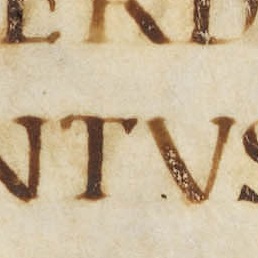 ERD
NTVS